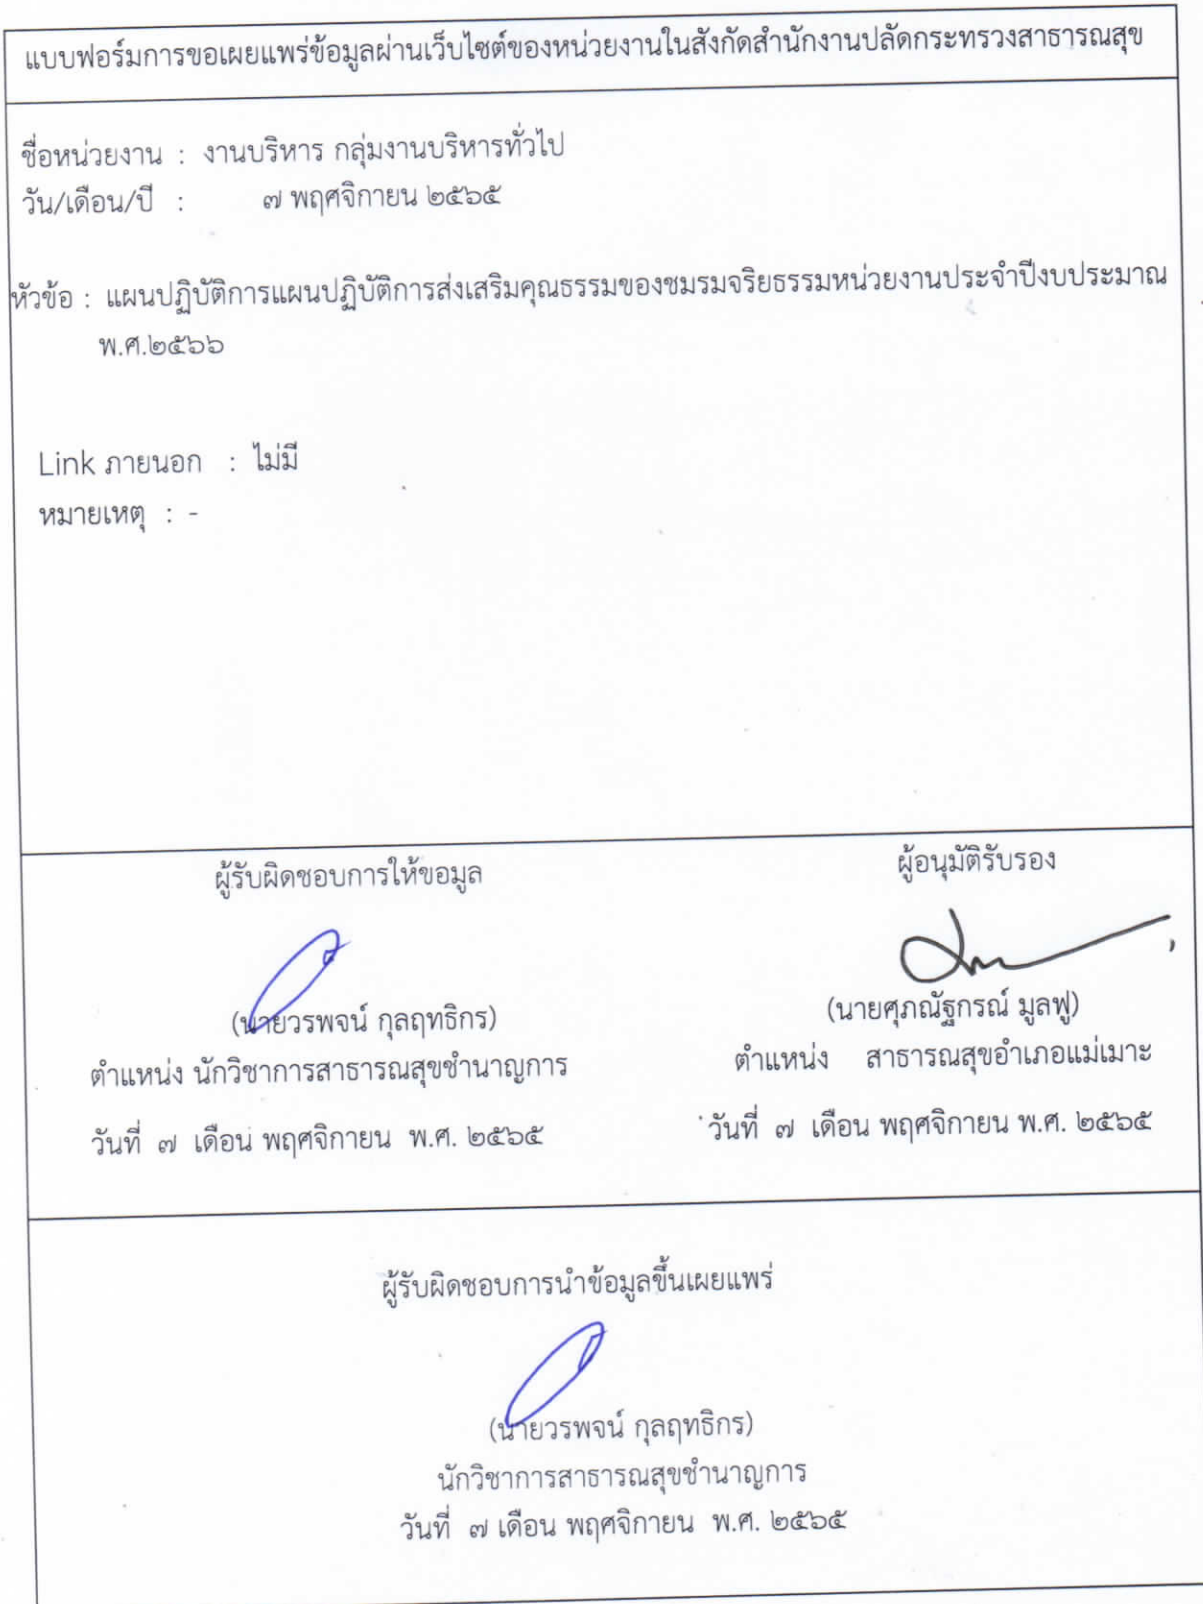 แบบฟอร์มการขอเผยแพร่ข้อมูลผ่านเว็บไซต์ของหน่วยงานในสังกัดสำนักงานปลัดกระทรวงสาธารณสุข
ชื่อหน่วยงาน : งานบริหาร กลุ่มงานบริหารทั่วไป
วัน/เดือน/ปี : ๗ พฤศจิกายน ๒๕๖๕
หัวข้อ : แผนปฏิบัติการแผนปฏิบัติการส่งเสริมคุณธรรมของชมรมจริยธรรมหน่วยงานประจำปีงบประมาณ
พ.ศ.๒๕๖๖
Link ภายนอก : ไม่มี
หมายเหตุ : -
ผู้รับผิดชอบการให้ขอมูล
(นายวรพจน์ กุลฤทธิกร)
ตำแหน่ง นักวิชาการสาธารณสุขชำนาญการ
วันที่ ๗ เดือน พฤศจิกายน พ.ศ. ๒๕๖๕
ผู้อนุมัติรับรอง
(นายศุภณัฐกรณ์ มูลฟู)
ตำแหน่ง สาธารณสุขอำเภอแม่เมาะ
วันที่ ๗ เดือน พฤศจิกายน พ.ศ. ๒๕๖๕
ผู้รับผิดชอบการนำข้อมูลขึ้นเผยแพร่
(นายวรพจน์ กุลฤทธิกร)
นักวิชาการสาธารณสุขชำนาญการ
วันที่ ๗ เดือน พฤศจิกายน พ.ศ. ๒๕๖๕